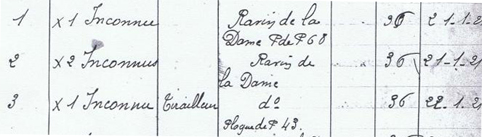 1 x 1 Inconnu Ravin de la 36 21-1-2
Dame P de P 68
2 x 2 Inconnus Ravin de 36 21-1-21
la Dame
3 x 1 Inconnu Tirailleur do 36 22.1.2
Plaque de P 43.